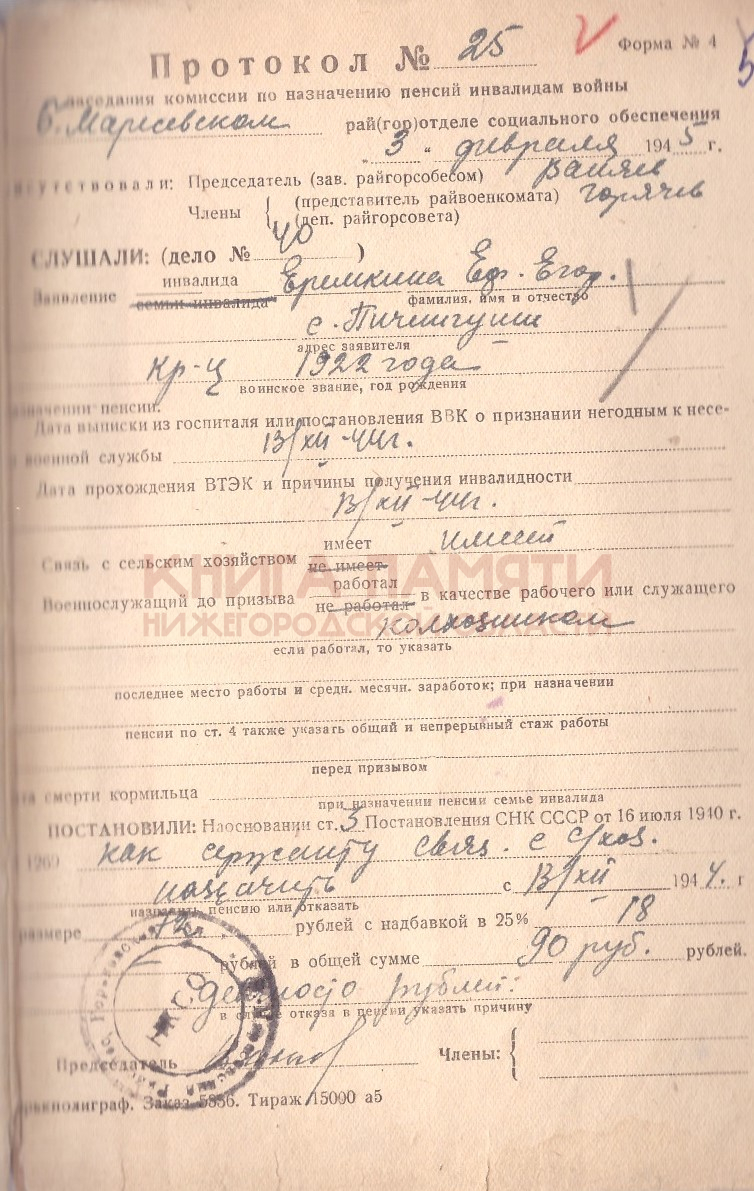 Протокол № 25
Форма № 4
5
заседания комиссии по назначению пенсий инвалидам войны
Б. Маресевском рай(гор)отделе социального обеспечения
" 3 " февраля 1945 г.
присутствовали: Председатель (зав. райгорсобесом)
Члены (представитель райвоенкомата) Горячев
(деп. райгорсовета)
СЛУШАЛИ: (дело № 40 )
Заявление инвалида Еремкина Еф. Егор.
семьи инвалида
фамилия, имя и отчество
с. Пичингуши
адрес заявителя
кр-ц 1922 года
воинское звание, год рождения
назначении пенсии.
Дата выписки из госпиталя или постановления ВВК о признании негодным к несе-
военной службы 13/XII-44г.
Дата прохождения ВТЭК и причины получения инвалидности
13/XII-44г.
Связь с сельским хозяйством имеет имеет
не имеет
Военнослужащий до призыва работал в качестве рабочего или служащего
не работал
колхозником
если работал, то указать
последнее место работы и средн. месячн. заработок; при назначении
пенсии по ст. 4 также указать общий и непрерывный стаж работы
перед призывом
смерти кормильца
при назначении пенсии семье инвалида
ПОСТАНОВИЛИ: Наосновании ст. 3 Постановления СНК СССР от 16 июля 1940 г.
1269 как сержанту связ. с с/хоз.
назначить с 13/XII 1944. г
назначить пенсию или отказать
размере 72 рублей с надбавкой в 25% 18
рублей в общей сумме 90 руб. рублей.
девяносто рублей.
в случае отказа в пенсии указать причину
Председатель Члены:
НКСО
Заказ 5856. Тираж 15000 а5
КНИГА ПАМЯТИ
НИЖЕГОРОДСКОЙ ОБЛАСТИ